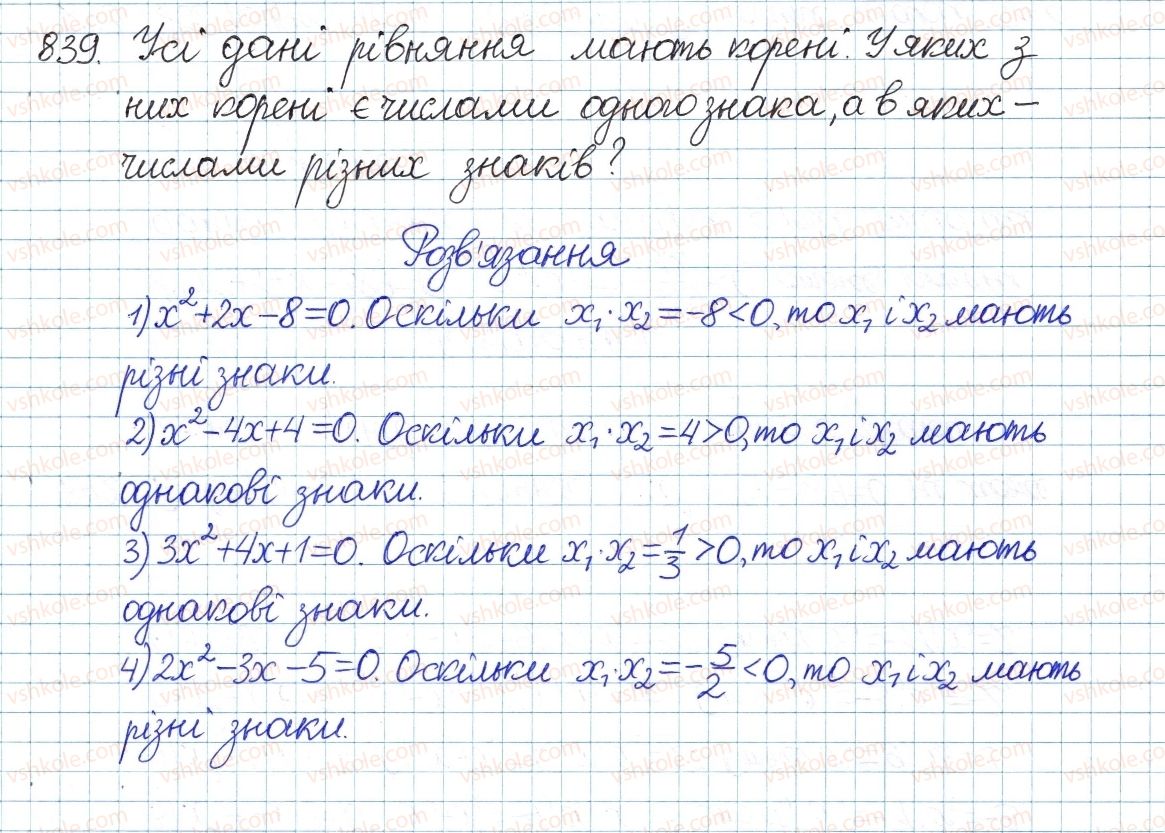 839. Усі дані рівняння мають корені. У яких з
них корені є числами одного знака, а в яких –
числами різних знаків?
Розв'язання
1) x² + 2x – 8 = 0. Оскільки x₁ · x₂ = –8 < 0, то x₁ і x₂ мають
різні знаки.
2) x² – 4x + 4 = 0. Оскільки x₁ · x₂ = 4 > 0, то x₁ і x₂ мають
однакові знаки.
3) 3x² + 4x + 1 = 0. Оскільки x₁ · x₂ = 1/3 > 0, то x₁ і x₂ мають
однакові знаки.
4) 2x² – 3x – 5 = 0. Оскільки x₁ · x₂ = – 5/2 < 0, то x₁ і x₂ мають
різні знаки.
vshkole.com